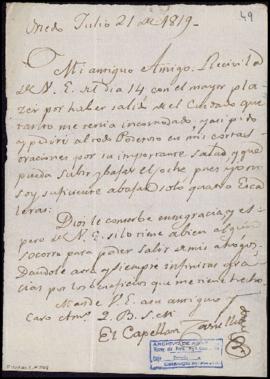 49
Oviedo Julio 21 de 1819.
Mi antiguo Amigo. Reciví la
de V. E. del dia 14 con el mayor pla-
zer por haber salido de el Cuidado que
tanto me tenia incomodado, y asi pido
y pediré al todo Poderoso en mis cortas
oraciones por su importante salud, y que
pueda subir y bajar el coche, pues yo no
soy suficiente a bajar solo quatro Esca-
leras:
Dios le conserbe en su gracia, y es-
pero de V. E. si lo tiene a bien algun
socorro para poder salir de mis ahogos.
Dandole aora y siempre infinitas gra-
cias por los beneficios que me tiene hechos
Mande V. E. a su antiguo y
Caro Am.º Q. B. S. M.
El Capellan